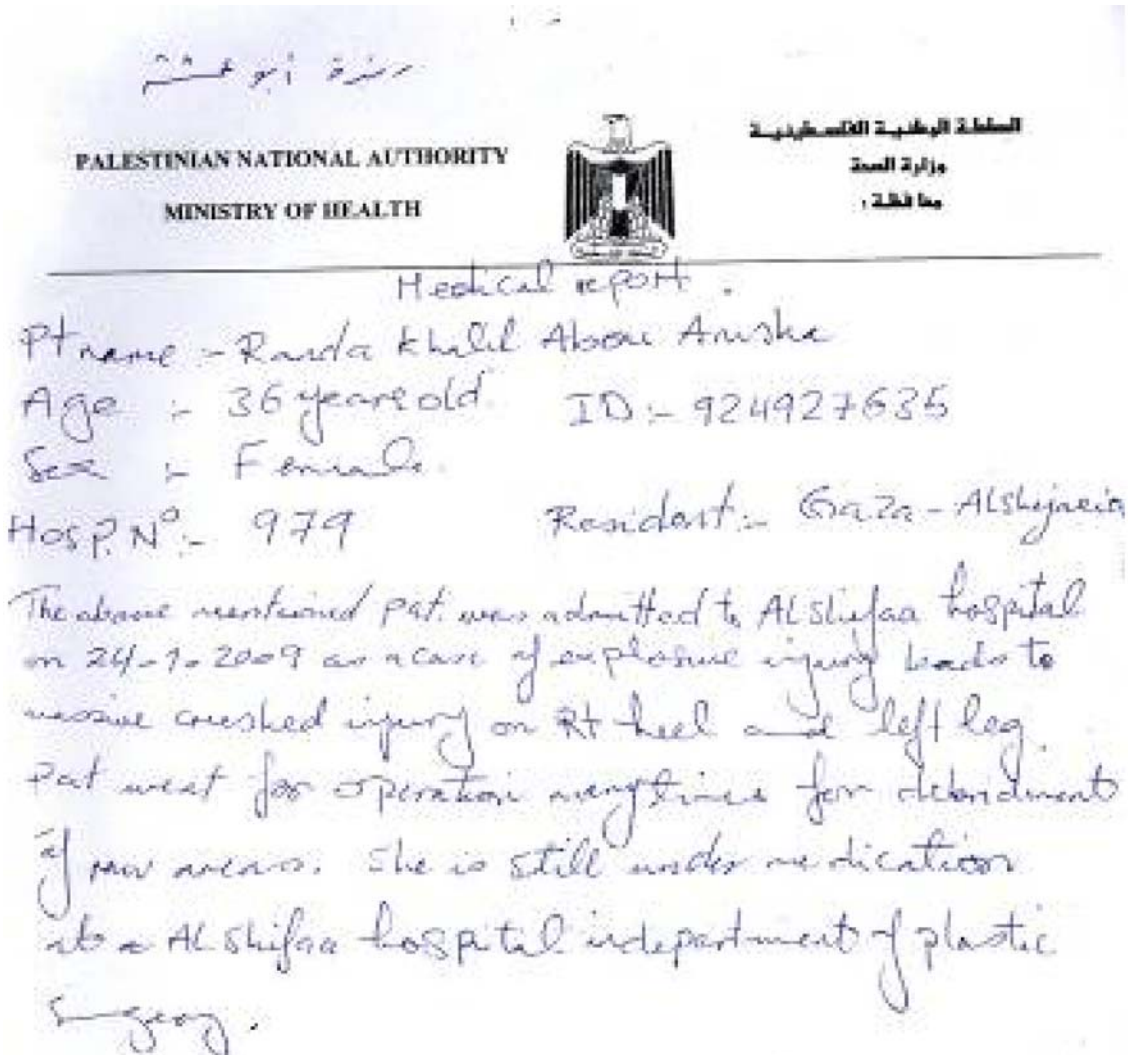 PALESTINIAN NATIONAL AUTHORITY
MINISTRY OF HEALTH
السلطة الوطنية الفلسطينية
وزارة الصحة
محافظة :
Medical report.
Pt name :- Randa Khalil Abou Arusha
Age :- 36 years old. ID :- 924927635
Sex :- Female.
Hosp. Nº :- 979 Resident :- Gaza - Alshijaeia
The above mentioned pat. was admitted to ALshifaa hospital
on 24-1-2009 as a case of explosive injury leads to
massive crushed injury on Rt heel and left leg.
Pat went for operation many times for debridment
of raw areas. She is still under medication
at ALshifaa hospital in department of plastic
Surgery.